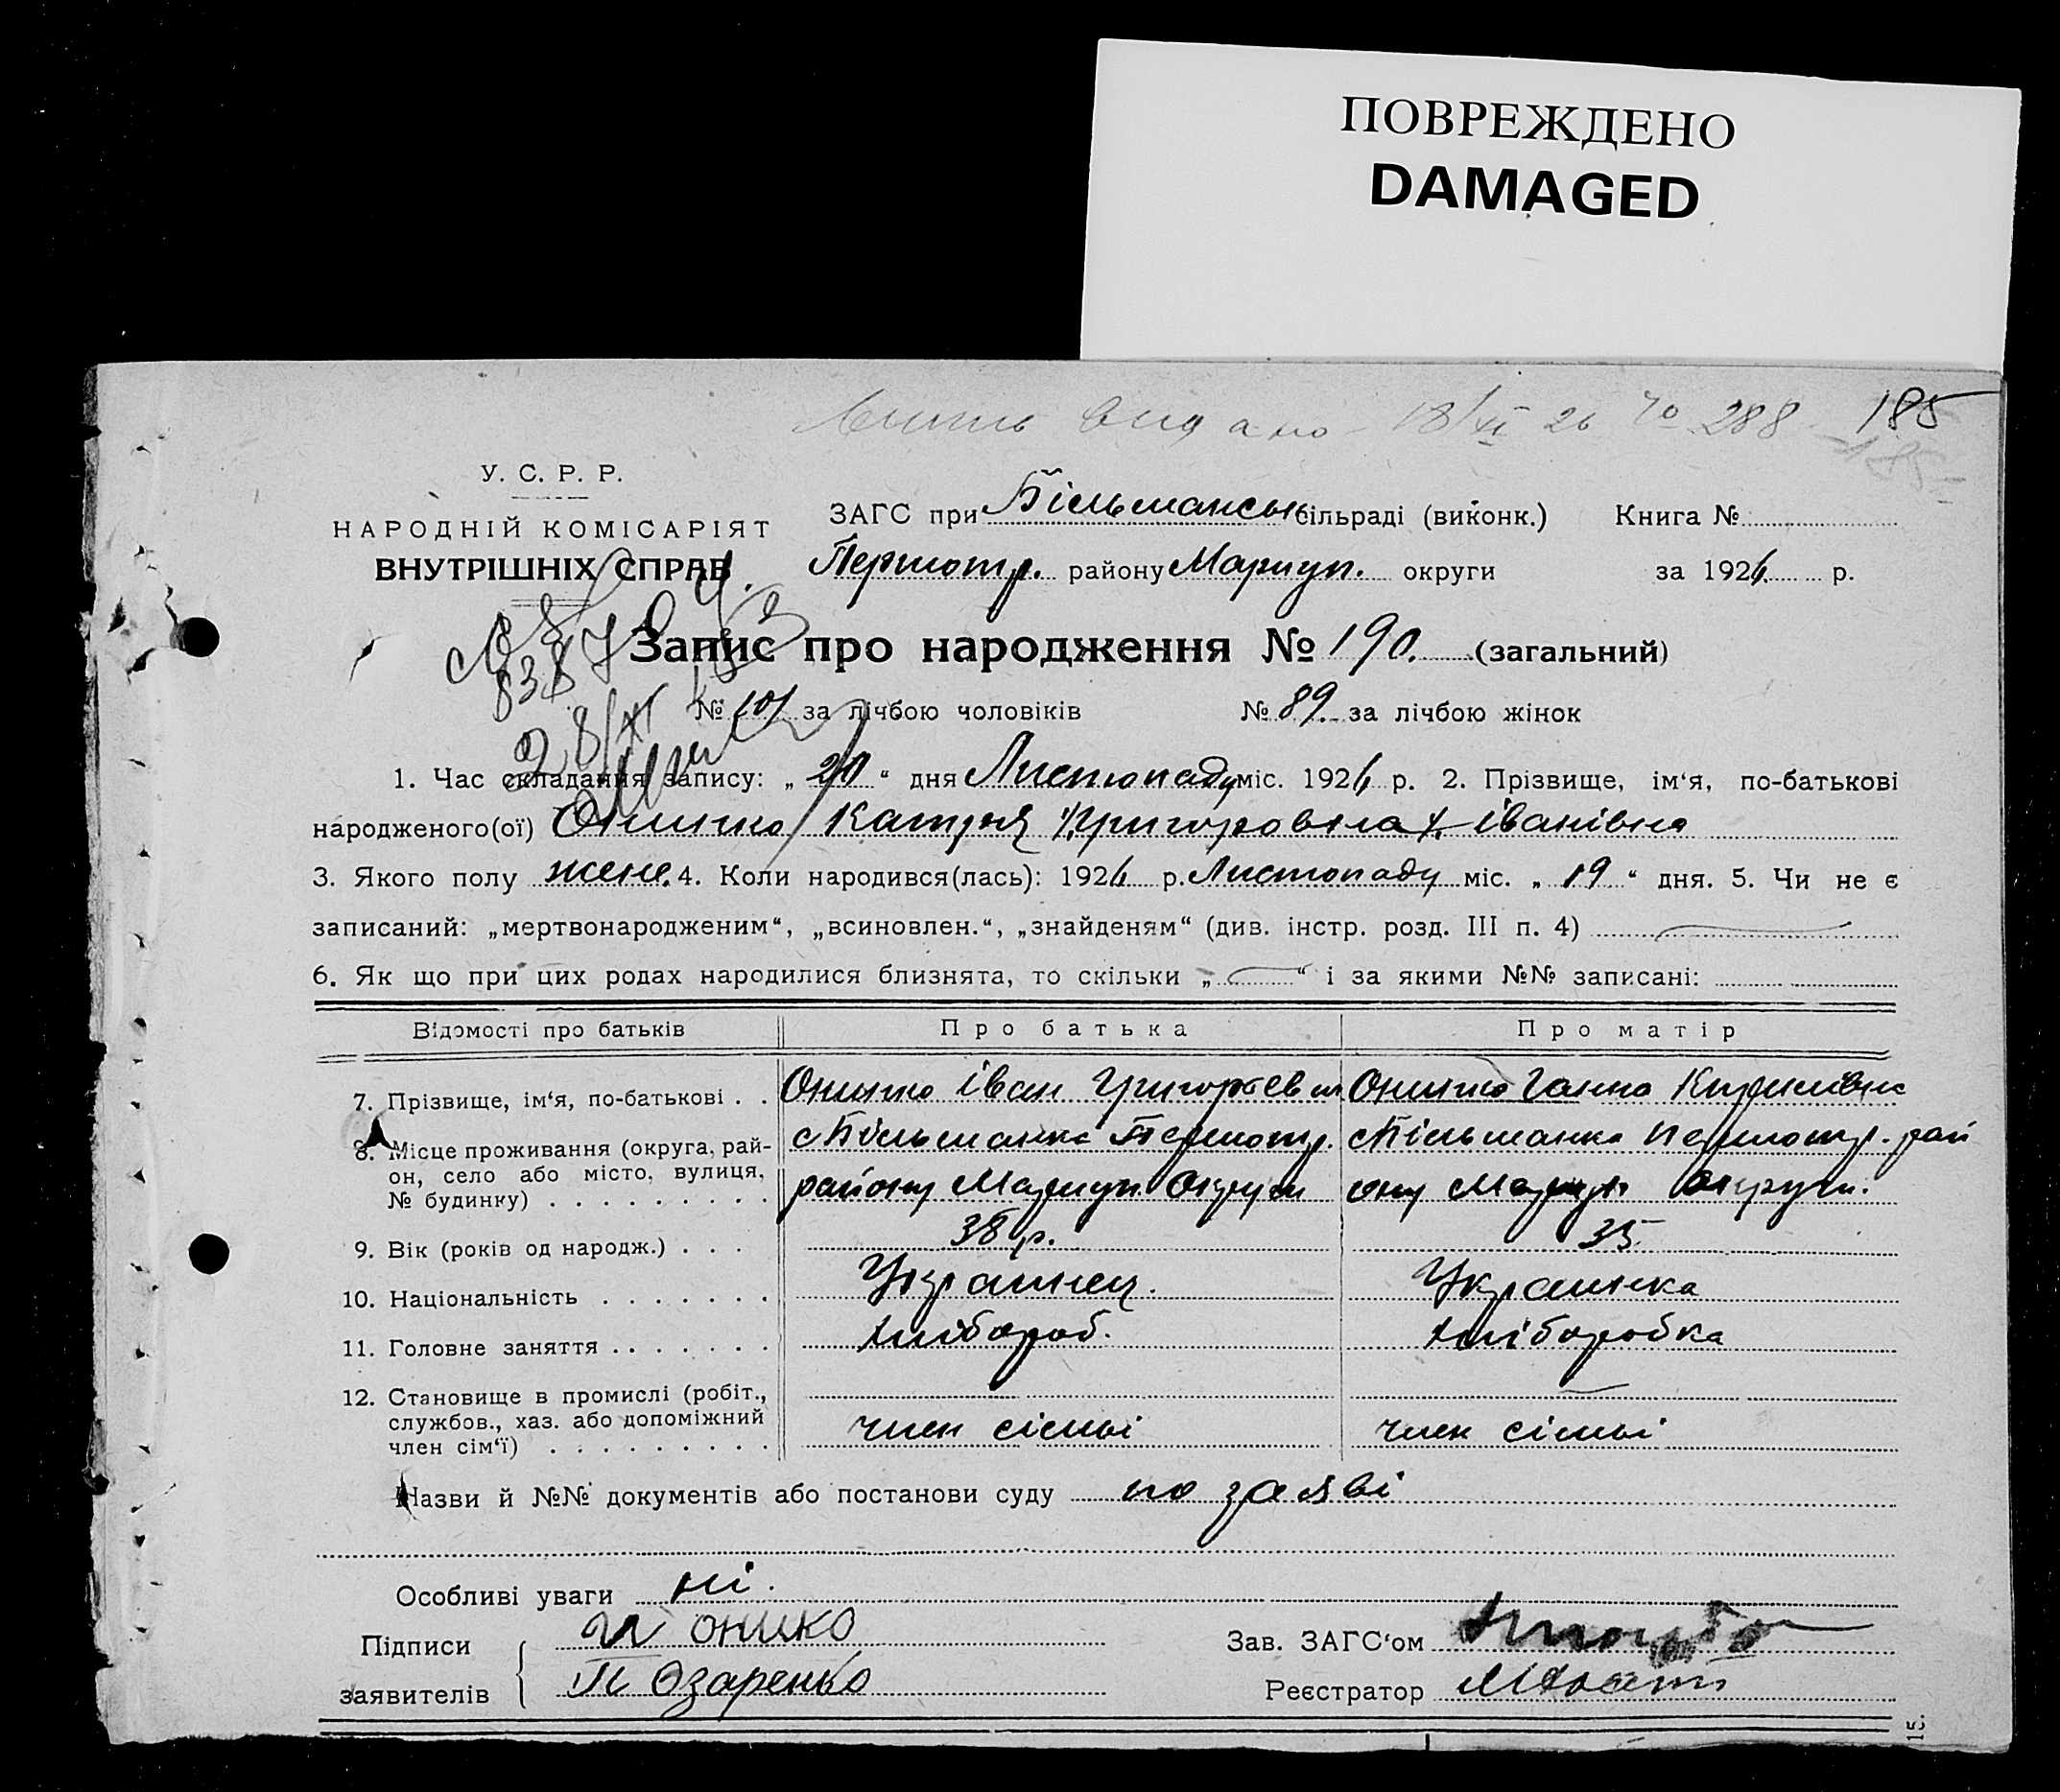 ПОВРЕЖДЕНО
DAMAGED
видано 18/XI 26 № 288 185
185
У. С. Р. Р.
НАРОДНІЙ КОМІСАРІЯТ
ВНУТРІШНІХ СПРАВ
ЗАГС при Більманськ сільраді (виконк.) Книга №
Першотр. району Маріуп. округи за 1926 р.
Запис про народження № 190. (загальний)
№ 101 за лічбою чоловіків № 89. за лічбою жінок
28/XI
1. Час складання запису: „ 20 “ дня Листопаду міс. 1926 р. 2. Прізвище, ім‘я, по-батькові
народженого(ої) Онишко Катря Григоровна Іванівна
3. Якого полу жене. 4. Коли народився(лась): 1926 р. Листопаду міс. „ 19 “ дня. 5. Чи не є
записаний: „мертвонародженим“, „всиновлен.“, „знайденям“ (див. інстр. розд. III п. 4)
6. Як що при цих родах народилися близнята, то скільки „ “ і за якими №№ записані:
Відомості про батьків Про батька Про матір
7. Прізвище, ім‘я, по-батькові . . Онишко Іван Григорєвич Онишко Ганна Кирилівна
8. Місце проживання (округа, рай- с Більманка Першотр. с Більманка Першотр. рай
он, село або місто, вулиця, району Маріуп. Округи ону Маріуп Округи.
№ будинку) . . . . . . . . .
9. Вік (років од народж.) . . . 38 р. 35
10. Національність . . . . . . . Украинец. Украинка
11. Головне заняття . . . . . . . хлібороб. хліборобка
12. Становище в промислі (робіт.,
службов., хаз. або допоміжний член сімьі член сімьі
член сім‘ї) . . . . . . . . .
Назви й №№ документів або постанови суду по заяві
Особливі уваги ні.
Підписи И Онико Зав. ЗАГС‘ом
заявителів П Озаренко Реєстратор
15.